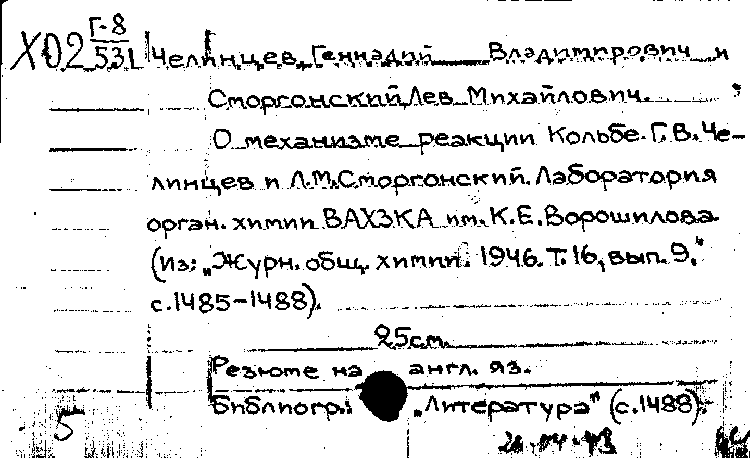 Х02 Г-8
531 Челинцев, Геннадий Владимирович и
Сморгонский, Лев Михайлович.
О механизме реакции Кольбе. Г.В. Че-
линцев и Л.М. Сморгонский. Лаборатория
орган. химии ВАХЗКА им. К.Е. Ворошилова
(Из: „Журн. общ. химии. 1946. Т. 16, вып. 9,"
с. 1485-1488).
25см.
Резюме на англ. яз.
Библиогр.: „Литература" (с. 1488).
5